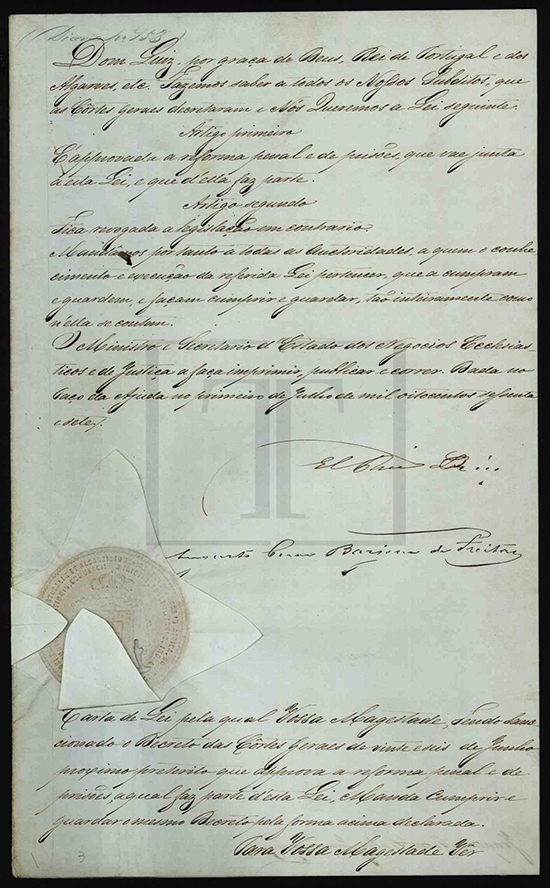 (Diario nº 153)
Dom Luiz, por graça de Deus, Rei de Portugal e dos
Algarves, etc. Fazemos saber a todos os Nossos Subditos, que
as Côrtes geraes decretaram e Nós Queremos a Lei seguinte.
Artigo primeiro
É approvada a reforma penal e de prisões, que vae junta
a esta Lei, e que d'ella faz parte.
Artigo segundo
Fica revogada a legislação em contrario.
Mandâmos por tanto a todas as Auctoridades, a quem o conhe
cimento e execução da referida Lei pertencer, que a cumpram
e guardem, e façam cumprir e guardar, tão inteiramente como
n'ella se contem.
O Ministro e Secretario d'Estado dos Negocios Ecclesias
ticos e de Justiça a faça imprimir, publicar e correr. Dada no
Paço da Ajuda no primeiro de Julho de mil oitocentos sessenta
e sete.
El Rei
Barjona de Freitas
Carta de Lei pela qual Vossa Magestade, Tendo Sanc
cionado o Decreto das Côrtes Geraes de vinte e seis de Junho
proximo preterito que approva a reforma penal e de
prisões a qual faz parte d'esta Lei, Manda Cumprir e
guardar o mesmo Decreto pela forma acima declarada.
Para Vossa Magestade Ver
3